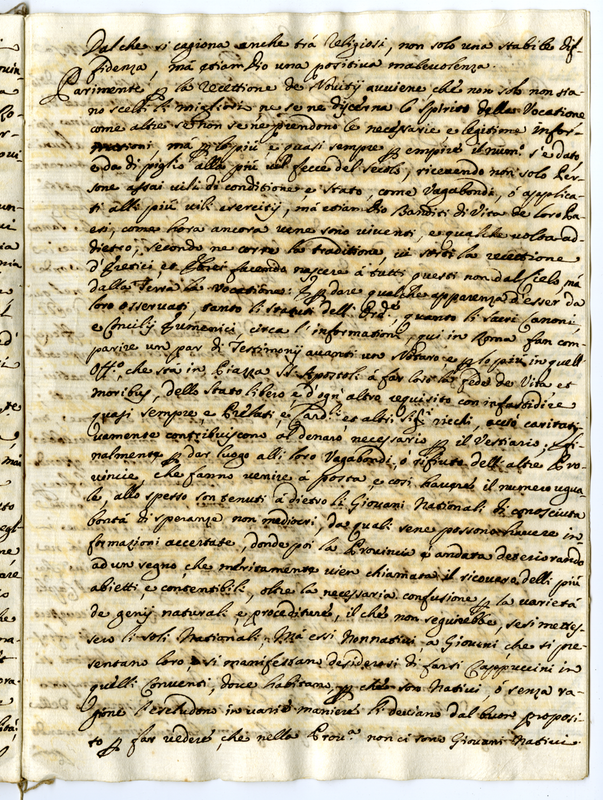 Dal che si cagiona anche trà Religiosi, non solo una stabile dif-
fidenza, mà etiam Dio una positiva malevolenza.
Parimente la recettione de Novitij avviene che non solo non sia
no scelti li migliori, ne se ne discerna lo spirito della Vocatione
come altresì non se ne prendono le necessarie e legitime Infor-
mationi, ma lo più e quasi sempre empire il num.o s'è dato,
e dà di piglio alle più vil fecce del secolo, ricevendo non solo Per
sone assai vili di conditione e stato, come Vagabondi, ò applica-
ti alli più vili esercitij, mà etiam Dio Banditi di Vita de loro Pa
esi, come hora ancora vene sono viventi, e qualche volta ad-
dietro, secondo ne corre la traditione, vi fù la recettione
d'Eretici, et facendo nascere à tutti questi non dal Cielo, mà
dalla Terra la vocatione: dare qualche apparenza d'esser da
loro osservati, tanto li statuti dell'Ord.e quanto li Sacri Canoni,
e Concilij Eumenici, circa l'informationi, qui in Roma fan com
parire un par di Testimonij avanti un Notaro, e lo più in quell'
Off.o, che stà in Piazza SS. Apostoli à far loro la fede de Vita et
moribus, dello stato libero, e d'ogni altro requisito con infastidire
quasi sempre, e Prelati, e et altri Sig.ri ricchi, acciò caritati
vamente contribuiscono al denaro necessario il Vestiario,
nalmente dar luogo alli loro Vagabondi, ò rifiuti dell'altre Pro
vincie, che fanno venire à posta e così havere il numero ugua
le, allo spesso son tenuti à dietro li Giovani Nationali di conosciuta
bontà di speranze non mediocri, da quali sene possono havere in
formationi accertate, donde poi la Provincia è andata deteriorando
ad un segno che meritamente vien chiamata il ricovero delli più
abietti e contentibili, oltre la necessaria confusione la varietà
de genij naturali e procediture, il che non seguirebbe, se si mettes
sero li soli Nationali, Mà essi Nonnativi a Giovani che si pre
sentano loro e si manifestan desiderosi di farsi Cappuccini in
quelli Conventi, dove habitano, che son Nativi, ò senza ra-
gione l'escludono in varie maniere li deviano dal buon proposi-
to far vedere, che nella Prov.a non ci sono Giovani Nativi